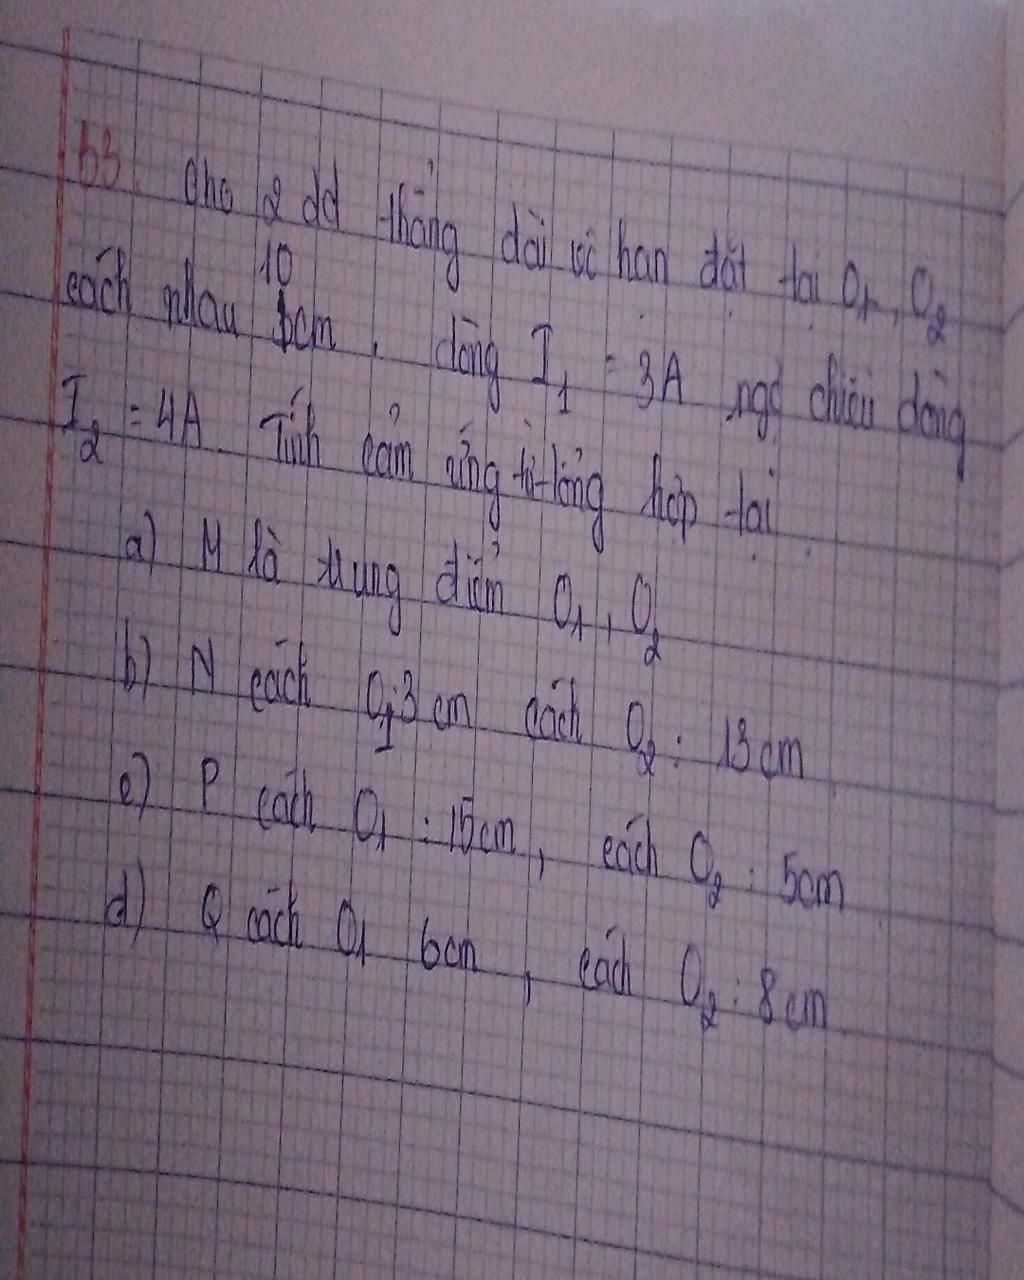 b3. Cho 2 dd thẳng dài vô hạn đặt tại O1, O2
cách nhau 10 cm. dòng I1 = 3A ngc chiều dòng
I2 = 4A Tính cảm ứng từ tổng hợp tại
a) M là trung điểm O1, O2
b) N cách O1 3 cm cách O2 : 13 cm
c) P cách O1 : 15cm, cách O2 : 5cm
d) Q cách O1 6cm, cách O2 : 8cm